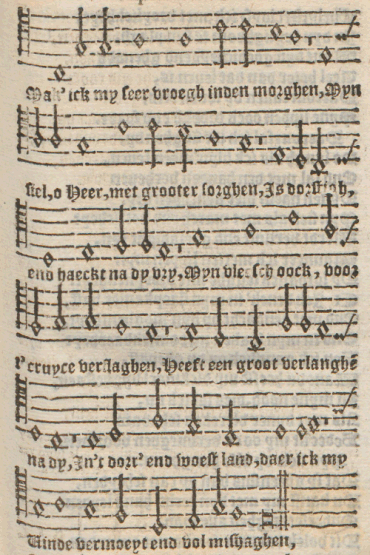 Mak' ick my seer vroegh inden morghen, Myn
siel, o Heer, met grooter sorghen, Is dorstigh,
end haeckt na dy vry, Myn vleesch oock, voor
t' cruyce verslaghen, Heeft een groot verlanghē
na dy, In't dorr' end woest land, daer ick my
Vinde vermoeyt end vol mishaghen,